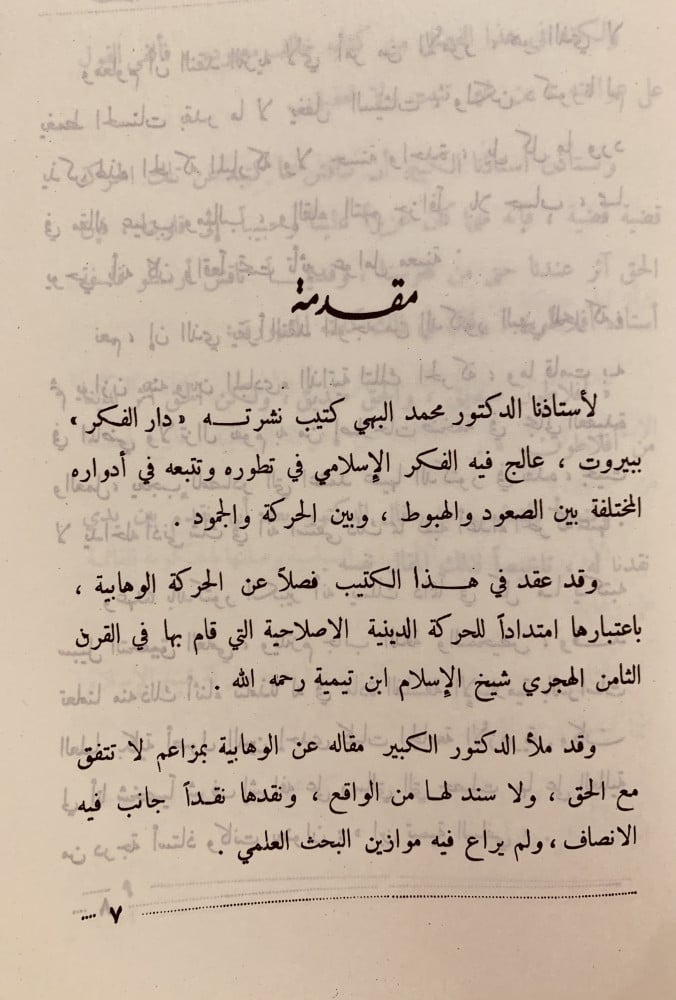 مقدمة
لأستاذنا الدكتور محمد البهي كتيب نشرته «دار الفكر»
ببيروت ، عالج فيه الفكر الإسلامي في تطوره وتتبعه في أدواره
المختلفة بين الصعود والهبوط ، وبين الحركة والجمود .
وقد عقد في هذا الكتيب فصلاً عن الحركة الوهابية ،
باعتبارها امتداداً للحركة الدينية الاصلاحية التي قام بها في القرن
الثامن الهجري شيخ الإسلام ابن تيمية رحمه الله .
وقد ملأ الدكتور الكبير مقاله عن الوهابية بمزاعم لا تتفق
مع الحق ، ولا سند لها من الواقع ، ونقدها نقداً جانب فيه
الانصاف ، ولم يراع فيه موازين البحث العلمي .
٧